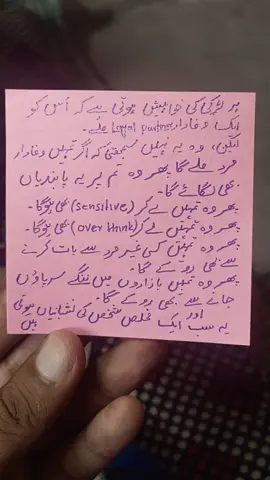 ہر لڑکی کی خواہش ہوتی ہے کہ اُس کو
ایک وفادار Loyal partner ملے۔
لیکن، وہ یہ نہیں سمجھتی کہ اگر تمہیں وفادار
مرد ملے گا پھر وہ تم پر یہ پابندیاں
بھی لگائے گا۔
پھر وہ تمہیں لے کر (sensitive) بھی ہوگا۔
پھر وہ تمہیں لے کر (over think) بھی ہوگا۔
پھر وہ تمہیں کسی غیر مرد سے بات کرنے
سے بھی روکے گا۔
پھر وہ تمہیں بازاروں میں ننگے سر پاؤں
جانے سے بھی روکے گا۔
اور
یہ سب ایک مخلص شخص کی نشانیاں ہوتی
ہیں